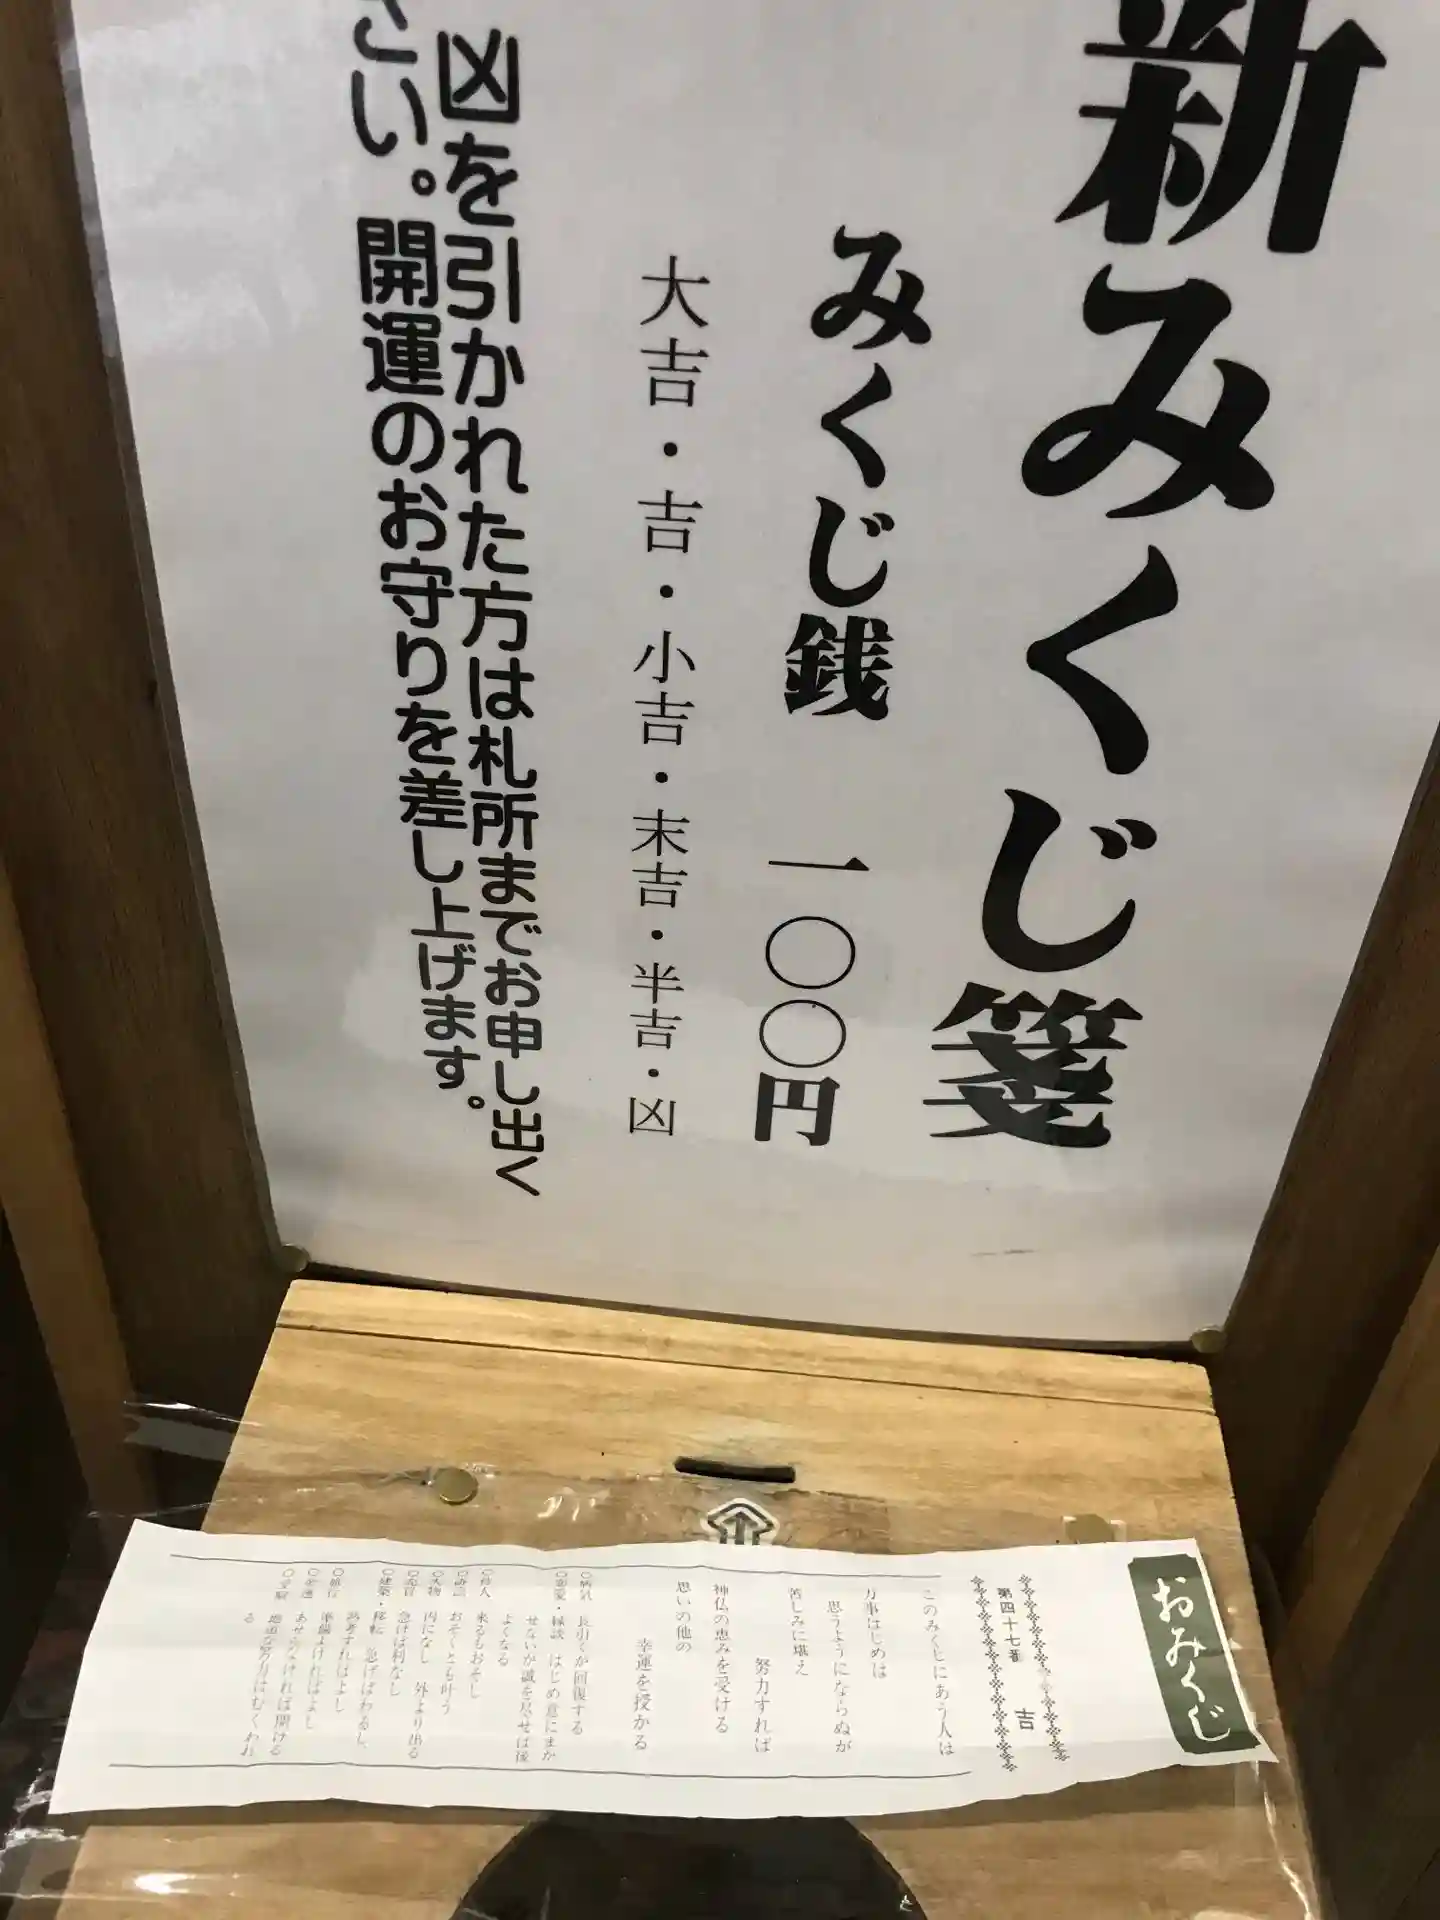 新みくじ箋
みくじ銭 一〇〇円
大吉・吉・小吉・末吉・半吉・凶
凶を引かれた方は札所までお申し出く
さい。開運のお守りを差し上げます。
おみくじ
第四十七番 吉
このみくじにあう人は
万事はじめは
思うようにならぬが
苦しみに堪え
努力すれば
神仏の恵みを受ける
思いの他の
幸運を授かる
○病気 長引くが回復する
○恋愛・縁談 はじめ意にまか
せないが誠を尽せば後
よくなる
○待人 来るもおそし
○訴訟 おそくとも叶う
○失物 内になし 外より出る
○売買 急げば利なし
○建築・移転 急げばわるし
熟考すればよし
○旅行 準備よければよし
○金運 あせらなければ開ける
○受験 地道な努力はむくわれ
る